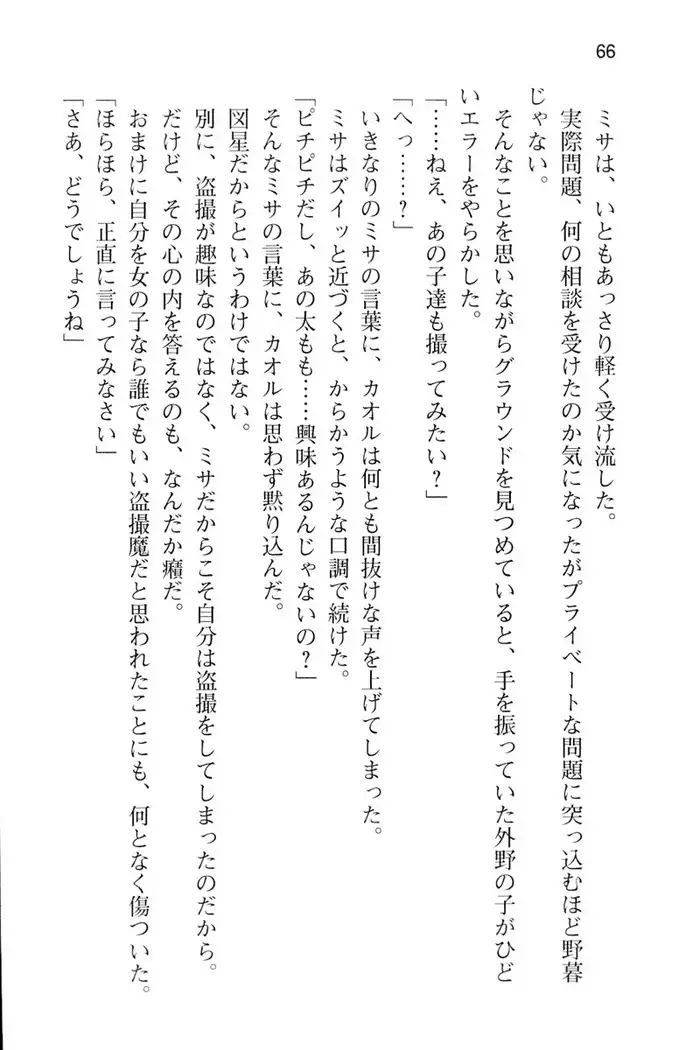 66
ミサは、いともあっさり軽く受け流した。
実際問題、何の相談を受けたのか気になったがプライベートな問題に突っ込むほど野暮
じゃない。
そんなことを思いながらグラウンドを見つめていると、手を振っていた外野の子がひど
いエラーをやらかした。
「……ねえ、あの子達も撮ってみたい？」
「へっ……？」
いきなりのミサの言葉に、カオルは何とも間抜けな声を上げてしまった。
ミサはズイッと近づくと、からかうような口調で続けた。
「ピチピチだし、あの太もも……興味あるんじゃないの？」
そんなミサの言葉に、カオルは思わず黙り込んだ。
図星だからというわけではない。
別に、盗撮が趣味なのではなく、ミサだからこそ自分は盗撮をしてしまったのだから。
だけど、その心の内を答えるのも、なんだか癪だ。
おまけに自分を女の子なら誰でもいい盗撮魔だと思われたことにも、何となく傷ついた。
「ほらほら、正直に言ってみなさい」
「さあ、どうでしょうね」